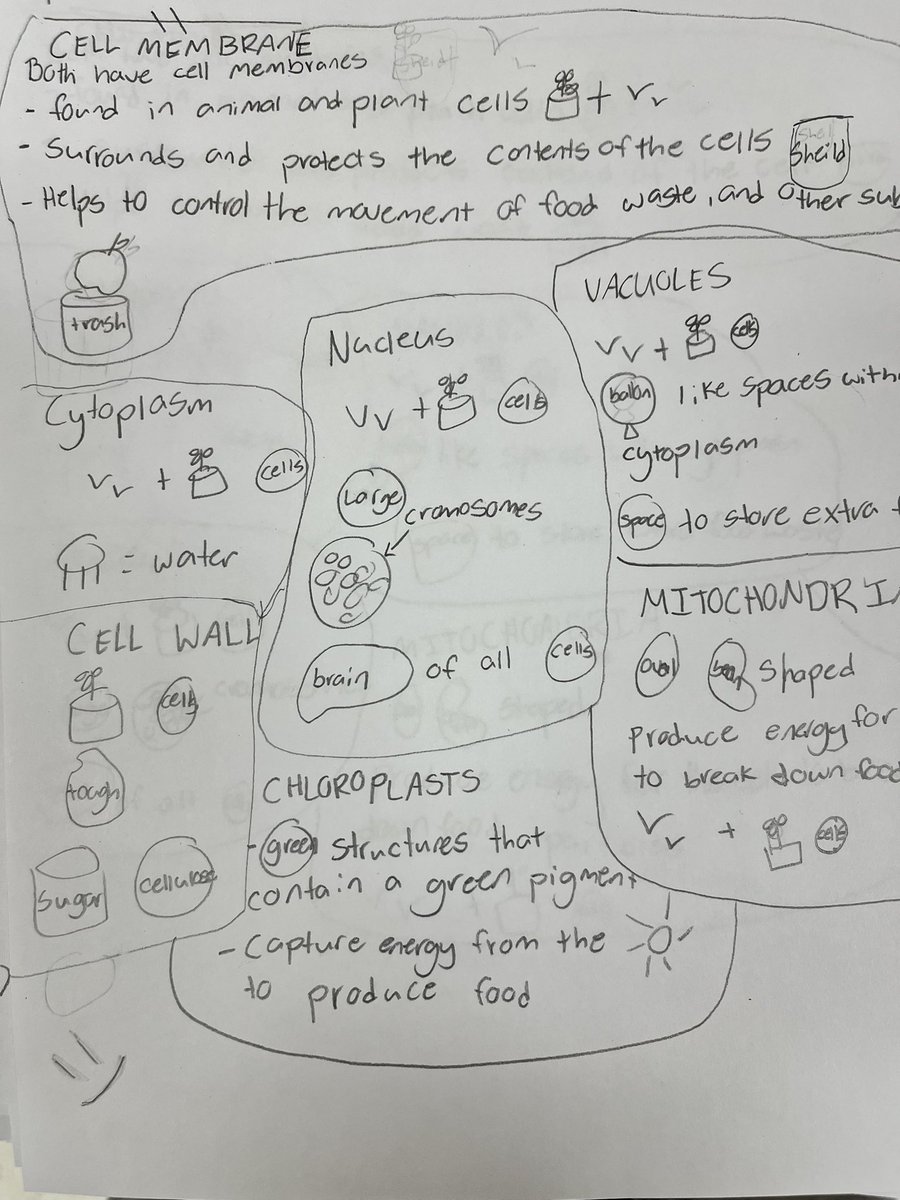 CELL MEMBRANE
Both have cell membranes
- found in animal and plant cells +
- Surrounds and protects the contents of the cells Sheild
- Helps to control the movement of food waste, and other sub
trash
Cytoplasm
+ cells
= water
CELL WALL
cells
tough
Sugar cellulose
Nucleus
+ cells
Large
cromosomes
brain of all cells
VACUOLES
+ cells
ballon like spaces with
cytoplasm
space to store extra
MITOCHONDRIA
oval shaped
Produce energy for
to break down food
+ cells
CHLOROPLASTS
- green structures that
contain a green pigment
- Capture energy from the
to produce food